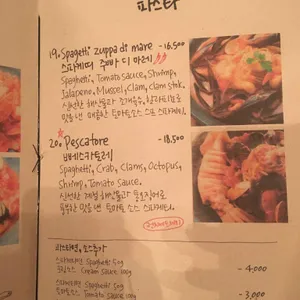 파스타
19. Spagetti zuppa di mare - 16.500
스파게띠 주빠 디 마레
Spaghetti, Tomato sauce, Shrimp,
Jalapeno, Mussel, Clam, Clam stock.
신선한 해산물과 조개육수,
맛을 낸 매콤한 토마토소스 스파게티.
20. Pescatore - 18.500
뻬스카토레
Spaghetti, Crab, Clams, Octopus,
Shrimp, Tomato Sauce.
신선한 제철 해산물과
풍부한 맛을 낸 토마토 소스 스파게티.
파스타면, 소스추가
스파게티면 Spaghetti 50g
크림소스 Cream sauce 100g - 4,000
스파게티면 Spaghetti 50g
토마토소스 Tomato sauce 100g - 3,000